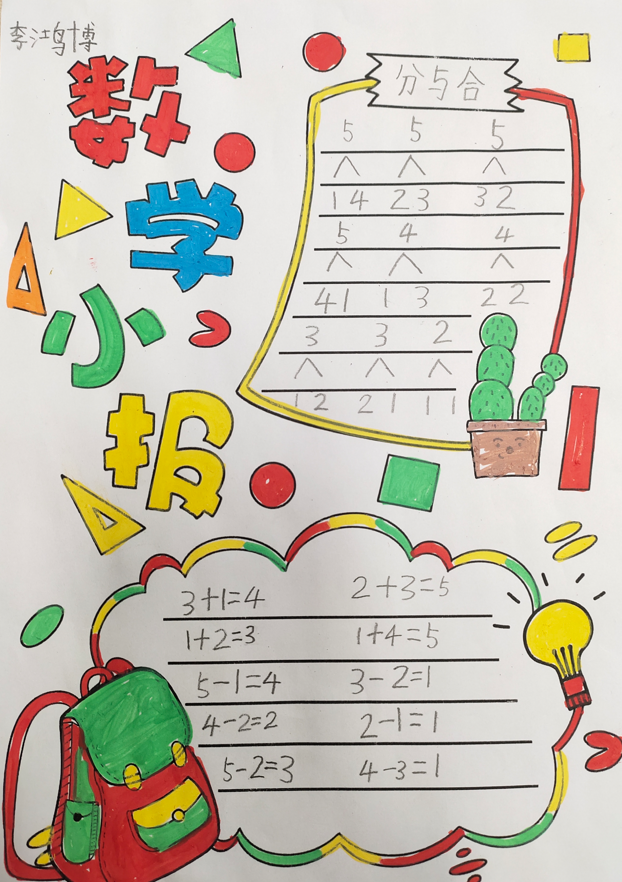 李鸿博
数
学
小
报
分与合
5 5 5
∧ ∧ ∧
14 23 32
5 4 4
∧ ∧ ∧
41 13 22
3 3 2
∧ ∧ ∧
12 21 11
3+1=4 2+3=5
1+2=3 1+4=5
5-1=4 3-2=1
4-2=2 2-1=1
5-2=3 4-3=1